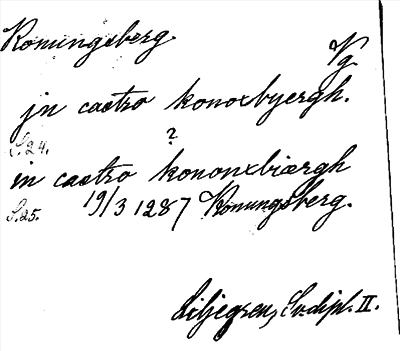 Konungsberg. Vg
jn castro konoxbyergh.
S. 24. ?
in castro kononxbiærgh
S. 25. 19/3 1287 Konungsberg.
Liljegren, Sv. dipl. II.